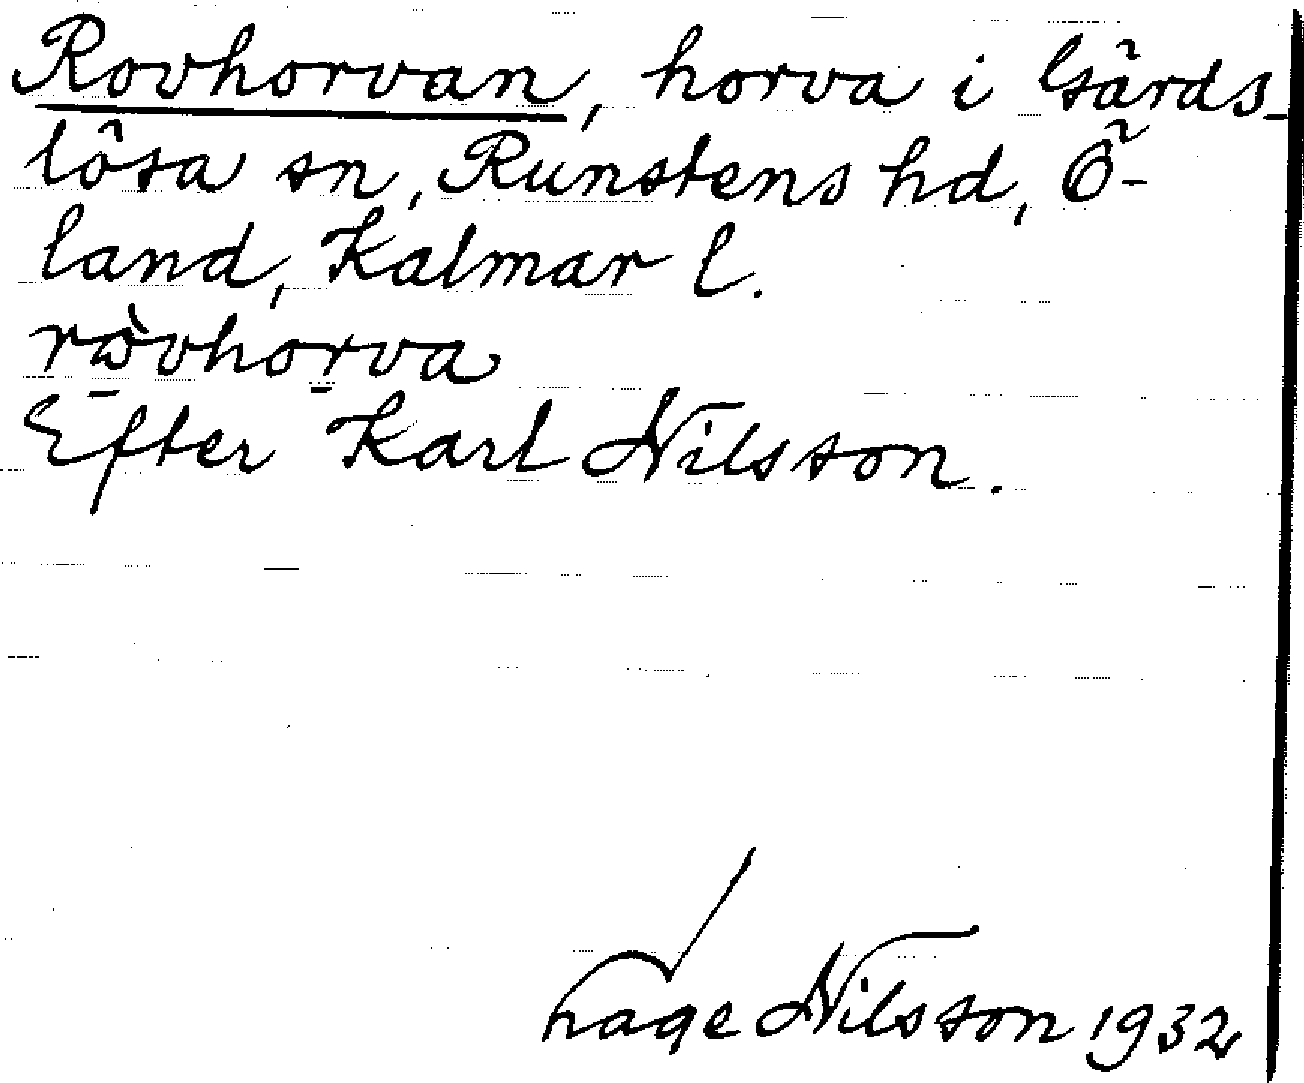 Rovhorvan, horva i Gärds-
lösa sn, Runstens hd, Ö-
land, Kalmar l.
ròvhorva
Efter Karl Nilsson.
Hage Nilsson 1932